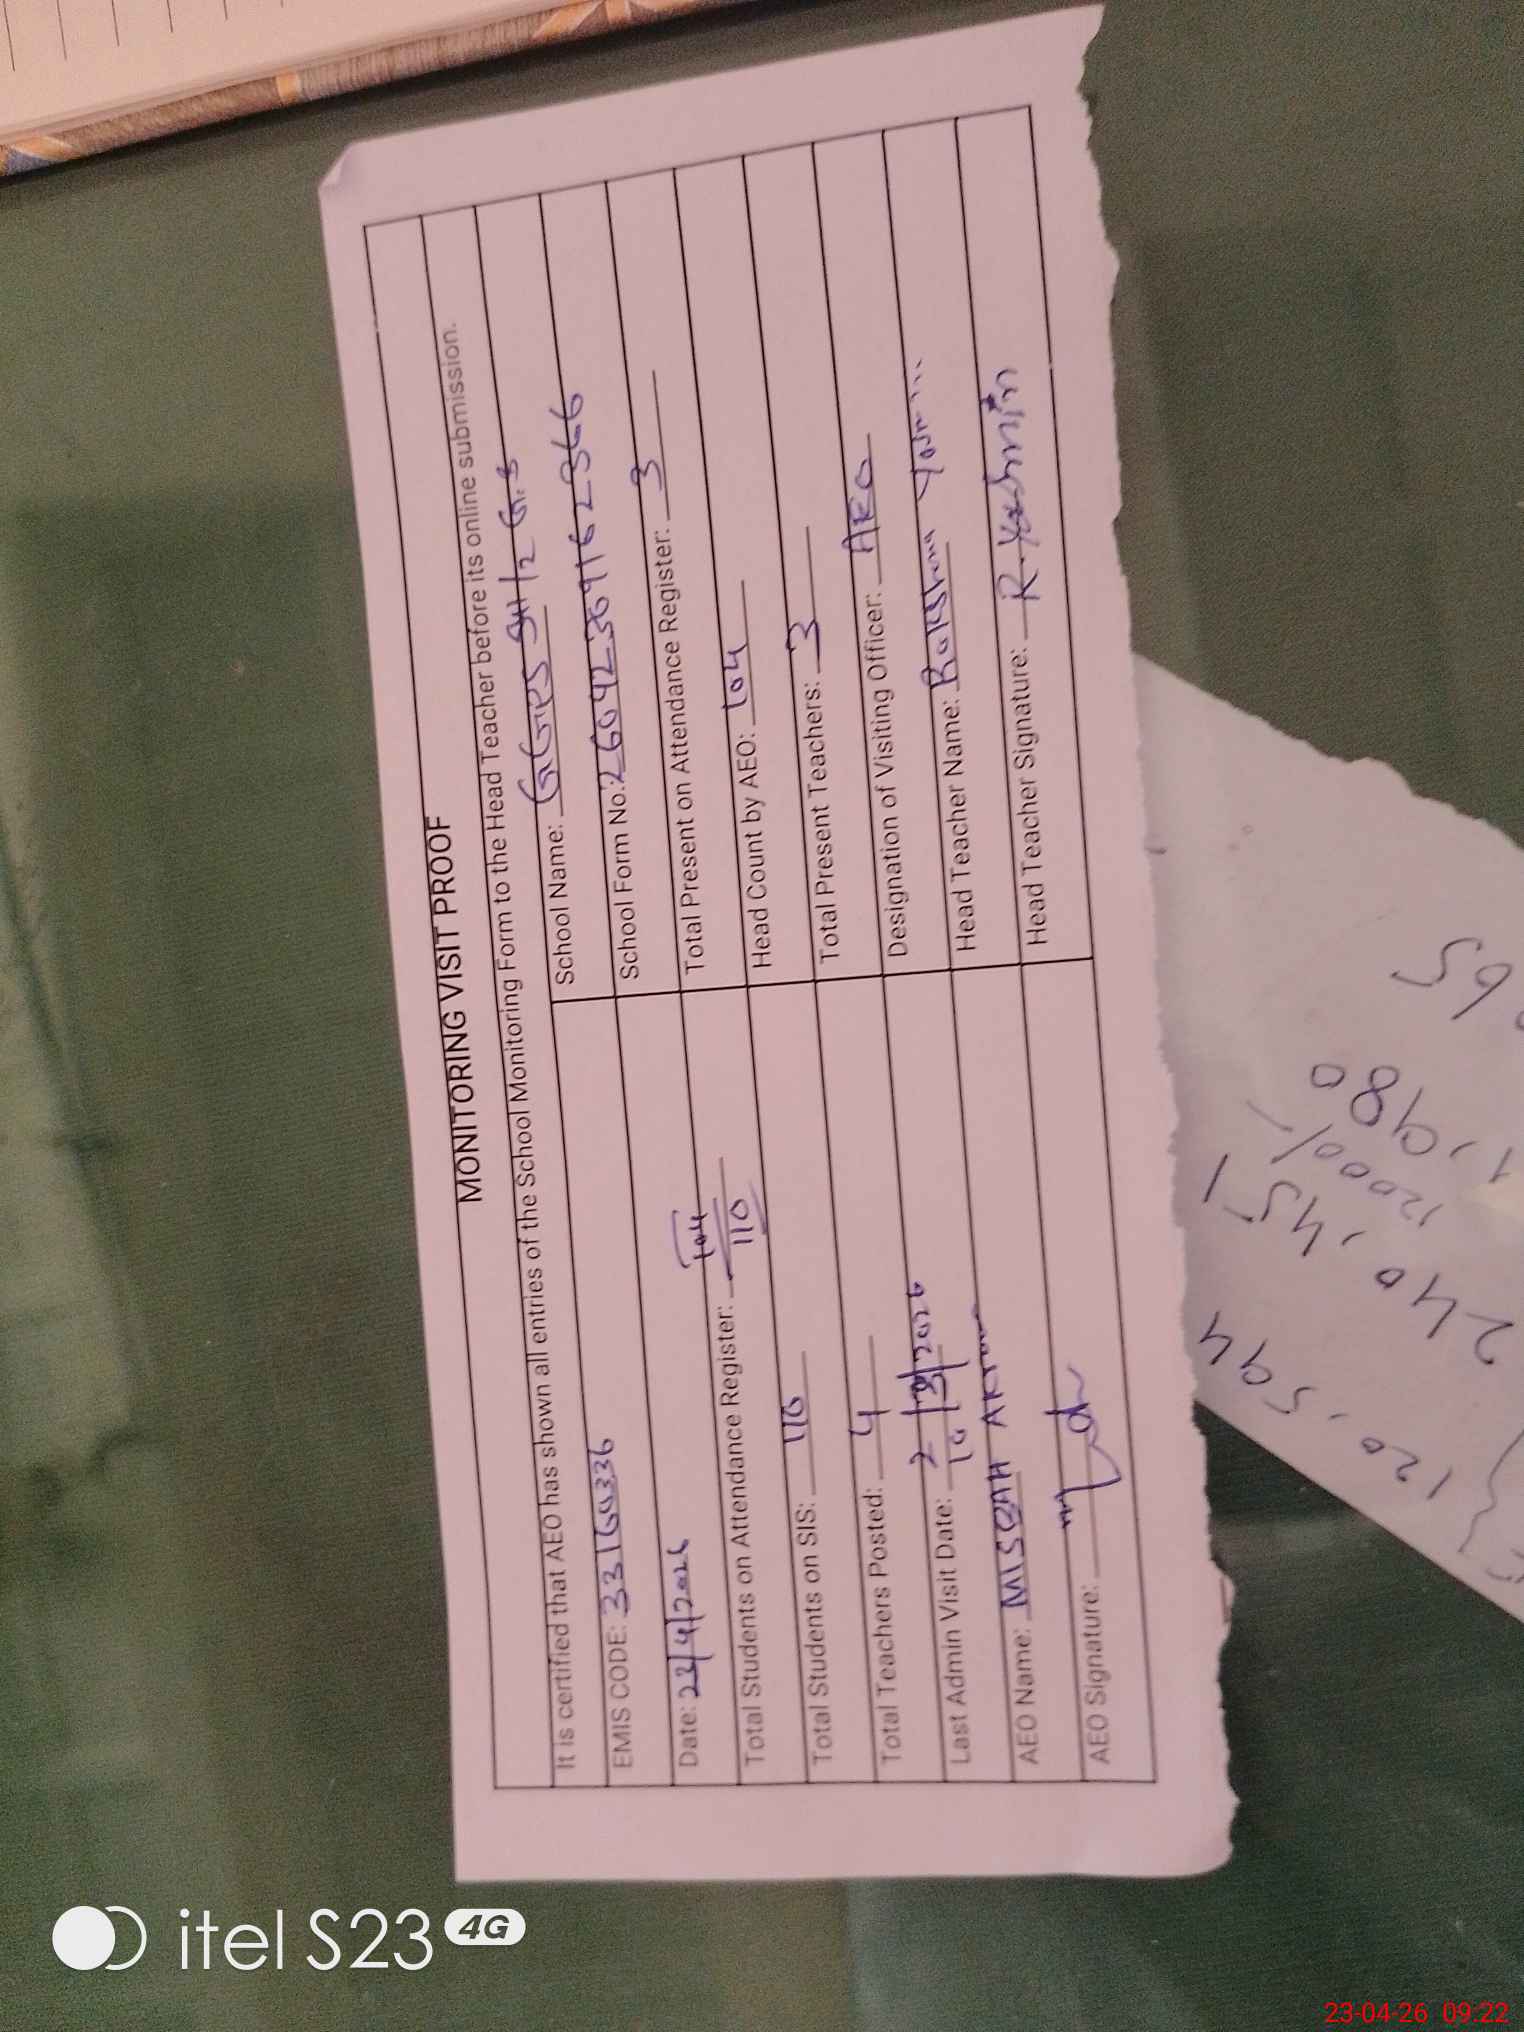 MONITORING VISIT PROOF
It is certified that AEO has shown all entries of the School Monitoring Form to the Head Teacher before its online submission.
EMIS CODE: 33160336
School Name: GGPS 541/2 G.B
Date: 23/4/2026
School Form No:
Total Students on Attendance Register: 104 110
Total Present on Attendance Register: 3
Total Students on SIS: 110
Head Count by AEO: 104
Total Teachers Posted: 4
Total Present Teachers: 3
Last Admin Visit Date: 10/3/2026
Designation of Visiting Officer: AEO
AEO Name: MISBAH AKram
Head Teacher Name: Rakshana
AEO Signature:
Head Teacher Signature: R.Yashmin
65
1,980
12000/
240,451
120,594
itel S23 4G
23-04-26 09:22